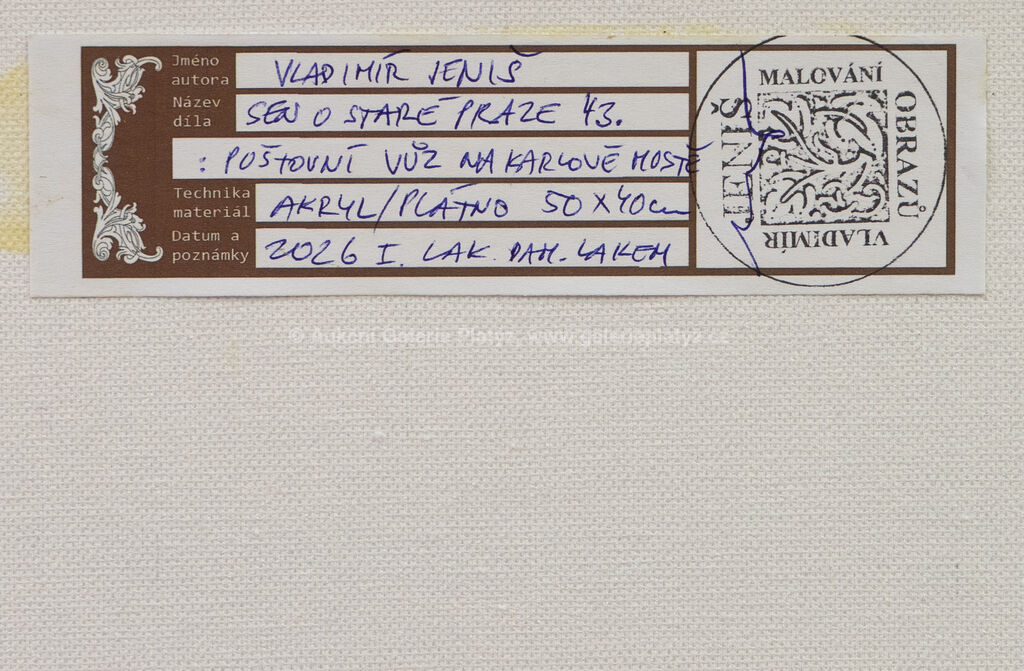 Jméno autora VLADIMÍR JENIŠ
Název díla SEN O STARÉ PRAZE 43.
: POŠTOVNÍ VŮZ NA KARLOVĚ MOSTĚ
Technika materiál AKRYL/PLÁTNO 50X40cm
Datum a poznámky 2026 I. LAK. DAM. LAKEM
MALOVÁNÍ
OBRAZŮ
VLADIMÍR
JENIŠ
© Aukční Galerie Platýz, www.galerieplatyz.cz